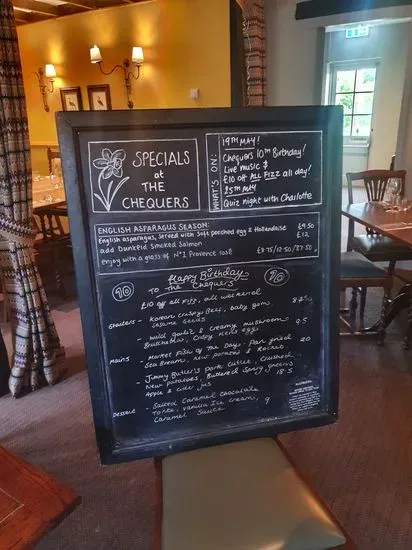 SPECIALS
at
THE
CHEQUERS
WHAT'S ON:
19TH MAY!
Chequers 10TH Birthday!
Live music &
£10 off ALL FIZZ all day!
25TH MAY
Quiz night with Charlotte
ENGLISH ASPARAGUS SEASON:
English asparagus, served with soft poached egg & Hollandaise £9.50
add Dunkeld Smoked Salmon £12
enjoy with a glass of No1 Provence rosé £8.75/12.50/37.50
Happy Birthday
10 TO The Chequers 10
£10 off all Fizz, all weekend
Starters - Korean crispy Beef, baby gem, 8.75
Sesame seeds
- Wild garlic & creamy mushroom 9.5
Bruschetta, Crispy Hens eggs
Mains - Market Fish of the Day: Pan fried 20
Sea Bream, new potatoes & Rocket
- Jimmy Butler's pork cutlet, crushed
New potatoes, Buttered Spring greens
Apple & cider jus 18.5
Dessert - Salted Caramel Chocolate
Torte, Vanilla Ice Cream, 9
Caramel Sauce